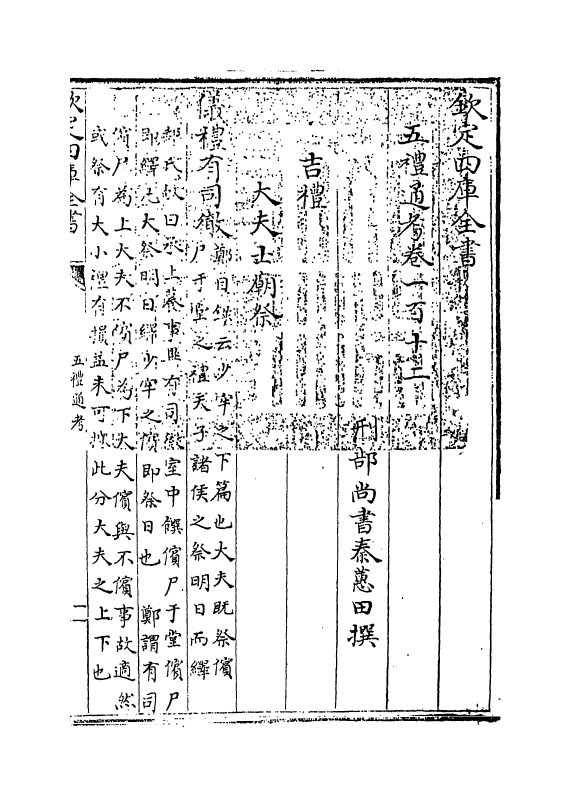 欽定四庫全書
五禮通考卷一百十二
刑部尚書秦蕙田撰
吉禮
大夫士廟祭
儀禮有司徹鄭目錄云少牢之下篇也大夫既祭儐
尸于堂之禮天子諸侯之祭明日而繹
郝氏敬曰承上篇事畢有司徹室中饋儐尸于堂儐尸
即繹也大祭明日繹少牢之儐即祭日也 鄭謂有司
儐尸為上大夫不儐尸為下大夫儐與不儐事故適然
或祭有大小禮有損益未可據此分大夫之上下也
欽定四庫全書
五禮通考
一